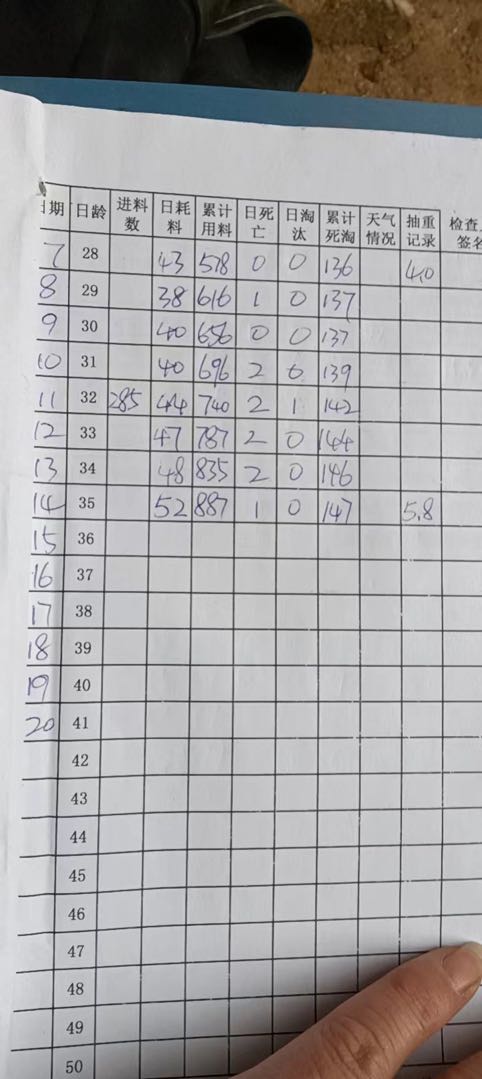 日期 日龄 进料数 日耗料 累计用料 日死亡 日淘汰 累计死淘 天气情况 抽重记录 检查 签名
7 28 43 578 0 0 136 4.0
8 29 38 616 1 0 137
9 30 40 656 0 0 137
10 31 40 696 2 0 139
11 32 285 44 740 2 1 142
12 33 47 787 2 0 144
13 34 48 835 2 0 146
14 35 52 887 1 0 147 5.8
15 36
16 37
17 38
18 39
19 40
20 41
42
43
44
45
46
47
48
49
50